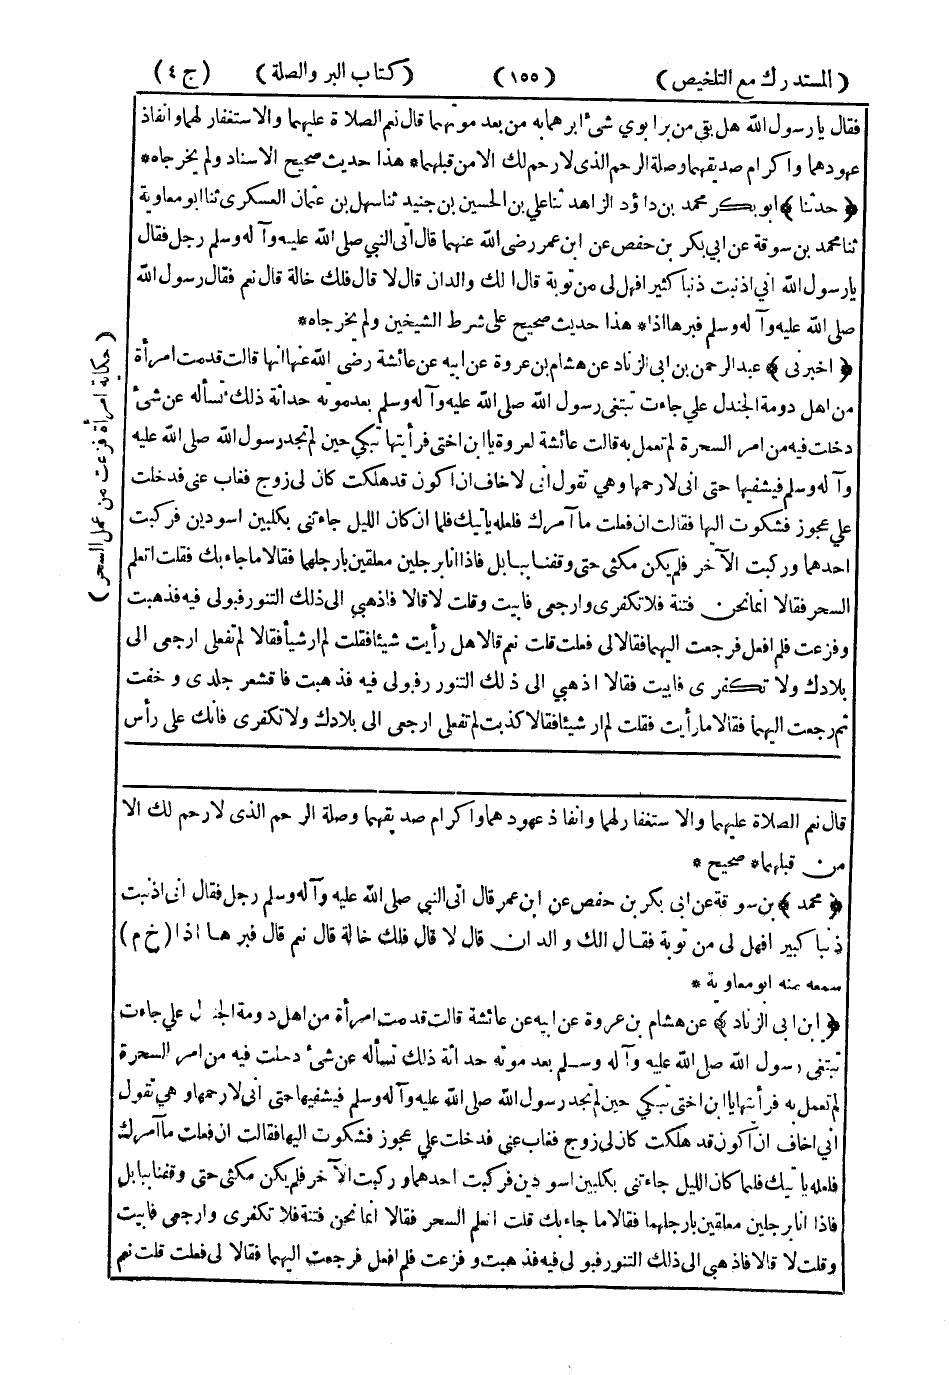 ( المستدرك مع التلخيص ) ( ١٥٥ ) ( كتاب البر والصلة ) ( ج ٤ )
فقال يا رسول الله هل بقي من بر ابوي شئ ابرهما به من بعد موتهما قال نعم الصلاة عليهما والاستغفار لهما وانفاذ
عهودهما واكرام صديقهما وصلة الرحم الذى لا رحم لك الا من قبلهما * هذا حديث صحيح الاسناد ولم يخرجاه *
﴿ حدثنا ﴾ ابو بكر محمد بن داؤد الزاهد ثنا علي بن الحسين بن جنيد ثنا سهل بن عثمان العسكرى ثنا ابو معاوية
ثنا محمد بن سوقة عن ابي بكر بن حفص عن ابن عمر رضى الله عنهما قال اتى النبي صلى الله عليه وآله وسلم رجل فقال
يا رسول الله اني اذنبت ذنبا كثيرا فهل لى من توبة قال الك والدان قال لا قال فلك خالة قال نعم فقال رسول الله
صلى الله عليه وآله وسلم فبرها اذا * هذا حديث صحيح على شرط الشيخين ولم يخرجاه *
﴿ اخبرنى ﴾ عبد الرحمن بن ابى الزناد عن هشام بن عروة عن ابيه عن عائشة رضى الله عنها انها قالت قدمت امرأة
من اهل دومة الجندل علي جاءت تبتغى رسول الله صلى الله عليه وآله وسلم بعد موته حداثة ذلك تسأله عن شئ
دخلت فيه من امر السحرة لم تعمل به قالت عائشة لعروة يا ابن اختى فرأيتها تبكي حين لم تجد رسول الله صلى الله عليه
وآله وسلم فيشفيها حتى انى لارحمها وهي تقول انى لاخاف ان اكون قد هلكت كان لى زوج فغاب عنى فدخلت
علي عجوز فشكوت اليها فقالت ان فعلت ما آمرك فلعله يأتيك فلما ان كان الليل جاءتنى بكلبين اسودين فركبت
احدهما وركبت الآخر فلم يكن مكثى حتى وقفنا ببابل فاذا انا برجلين معلقين بارجلهما فقالا ما جاء بك فقلت اتعلم
السحر فقالا انما نحن فتنة فلا تكفرى وارجعى فابيت وقلت لا قالا فاذهبي الى ذلك التنور فبولى فيه فذهبت
وفزعت فلم افعل فرجعت اليهما فقالا لى فعلت قلت نعم قالا هل رأيت شيئا فقلت لم ار شيأ فقالا لم تفعلى ارجعى الى
بلادك ولا تكفرى فابيت فقالا اذهبي الى ذلك التنور فبولى فيه فذهبت فاقشعر جلدى وخفت
ثم رجعت اليهما فقالا ما رأيت فقلت لم ار شيئا فقالا كذبت لم تفعلى ارجعى الى بلادك ولا تكفرى فانك على رأس
( حكاية امرأة فزعت من عمل السحر )
قال نعم الصلاة عليهما والاستغفار لهما وانفاذ عهودهما واكرام صديقهما وصلة الرحم الذى لا رحم لك الا
من قبلهما * صحيح *
﴿ محمد ﴾ بن سوقة عن ابى بكر بن حفص عن ابن عمر قال اتى النبي صلى الله عليه وآله وسلم رجل فقال انى اذنبت
ذنبا كبيرا فهل لى من توبة فقال الك والدان قال لا قال فلك خالة قال نعم قال فبرها اذا ( خ م )
سمعه منه ابو معاوية *
﴿ ابن ابى الزناد ﴾ عن هشام بن عروة عن ابيه عن عائشة قالت قدمت امرأة من اهل دومة الجندل علي جاءت
تبتغى رسول الله صلى الله عليه وآله وسلم بعد موته حداثة ذلك تسأله عن شئ دخلت فيه من امر السحرة
لم تعمل به فرأيتها يا ابن اختى تبكي حين لم تجد رسول الله صلى الله عليه وآله وسلم فيشفيها حتى انى لارحمها وهى تقول
انى اخاف ان اكون قد هلكت كان لى زوج فغاب عنى فدخلت علي عجوز فشكوت اليها فقالت ان فعلت ما آمرك
فلعله ياتيك فلما كان الليل جاءتنى بكلبين اسودين فركبت احدهما وركبت الآخر فلم يكن مكثى حتى وقفنا ببابل
فاذا انا برجلين معلقين بارجلهما فقالا ما جاء بك قلت اتعلم السحر فقالا انما نحن فتنة فلا تكفرى وارجعى فابيت
وقلت لا قالا فاذهبى الى ذلك التنور فبولى فيه فذهبت وفزعت فلم افعل فرجعت اليهما فقالا لى فعلت قلت نعم